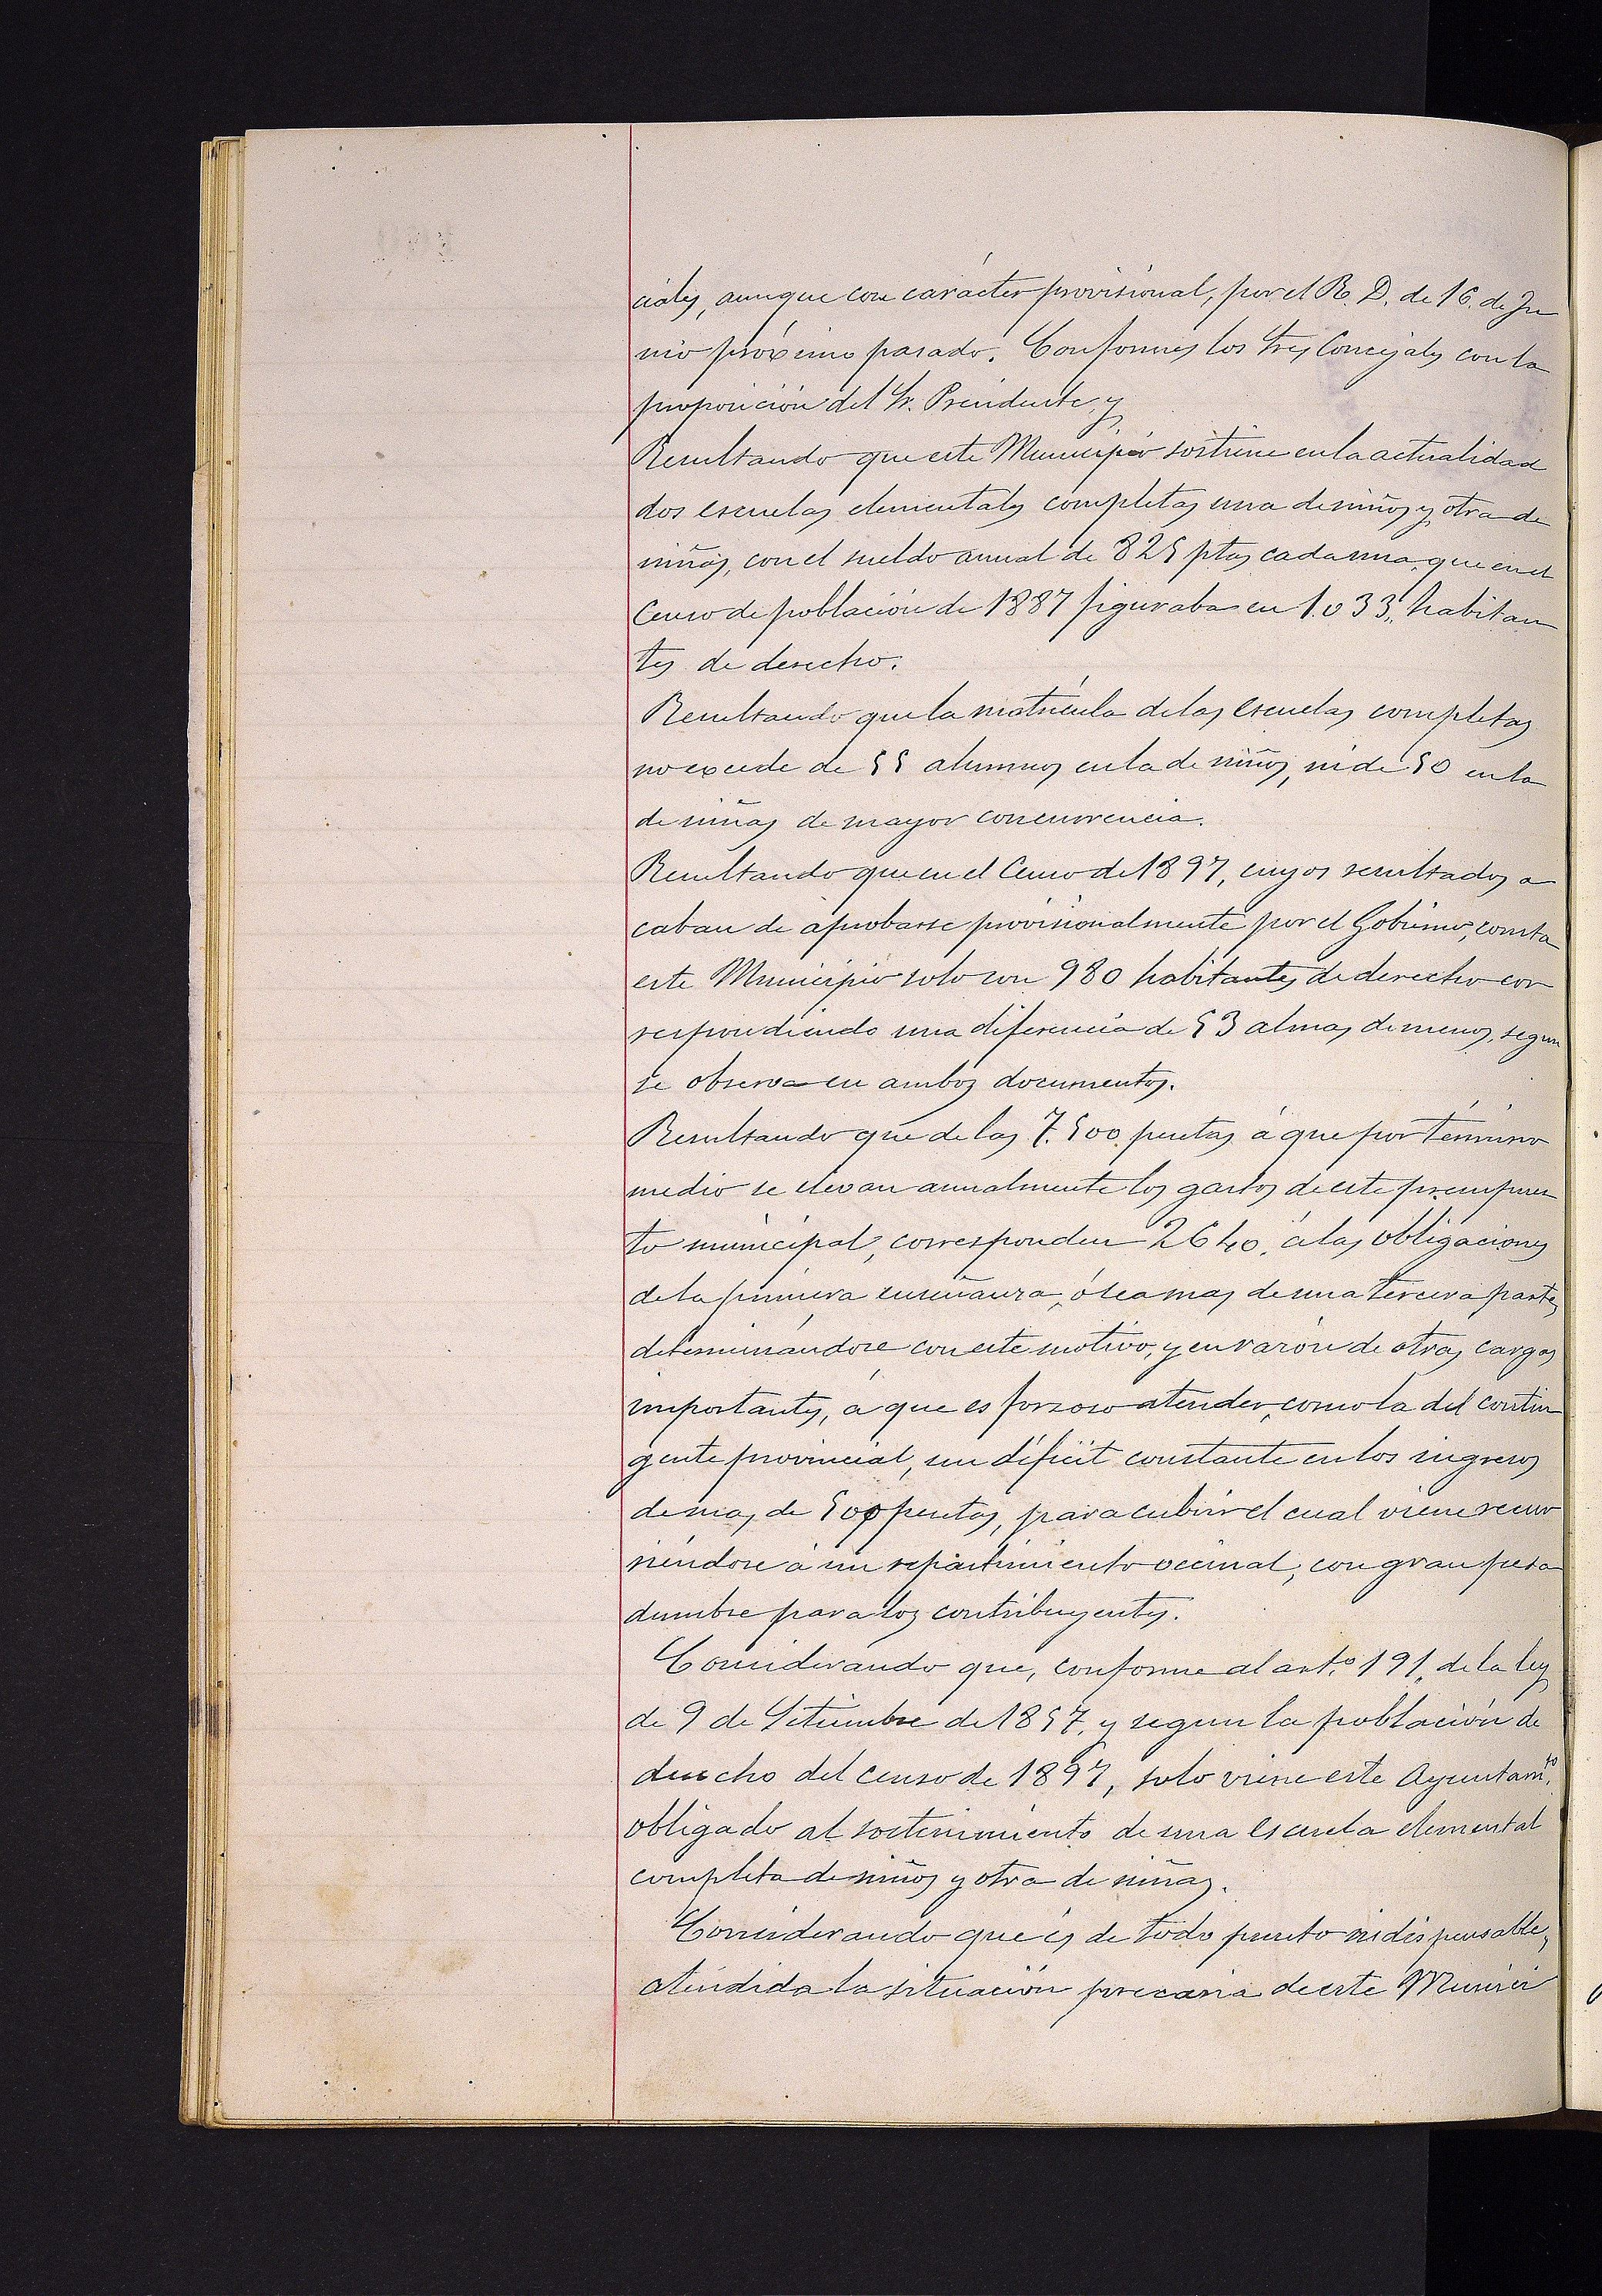 ciales, aunque con carácter provisional, por el R. D. de 16. de Ju
nio próximo pasado. Conformes los tres Concejales con la
proposición del Sr. Presidente, y
Resultando que este Municipio sostiene en la actualidad
dos escuelas elementales completas una de niños y otra de
niñas, con el sueldo anual de 825 ptas cada una, que en el
Censo de población de 1887 figuraba en 1.033, habitan
tes de derecho.
Resultando que la matrícula de las escuelas completas
no excede de 55 alumnos en la de niños, ni de 50 en la
de niñas de mayor concurrencia.
Resultando que en el Censo de 1897, cuyos resultados a
caban de aprobarse provisionalmente por el Gobierno, consta
este Municipio solo con 980 habitantes de derecho cor
respondiendo una diferencia de 53 almas de menos, segun
se observa en ambos documentos.
Resultando que de las 7.500 pesetas á que por término
medio se elevan anualmente los gastos de este presupues
to municipal, corresponden 2640, á las obligaciones
de la primera enseñanza, ó sea mas de una tercera parte,
determinándose con este motivo, y en razón de otras cargas
importantes, á que es forzoso atender, como la del contin
gente provincial, un déficit constante en los ingresos
de mas de 500 pesetas, para cubrir el cual viene recur
riéndose á un repartimiento vecinal, con gran pesa
dumbre para los contribuyentes.
Considerando que, conforme al art.º 191, de la ley
de 9 de Setiembre de 1857, y segun la población de
derecho del censo de 1897, solo viene este Ayuntamto.
obligado al sostenimiento de una escuela elemental
completa de niños y otra de niñas.
Considerando que es de todo punto indispensable,
atendida la situación precaria de este Munici